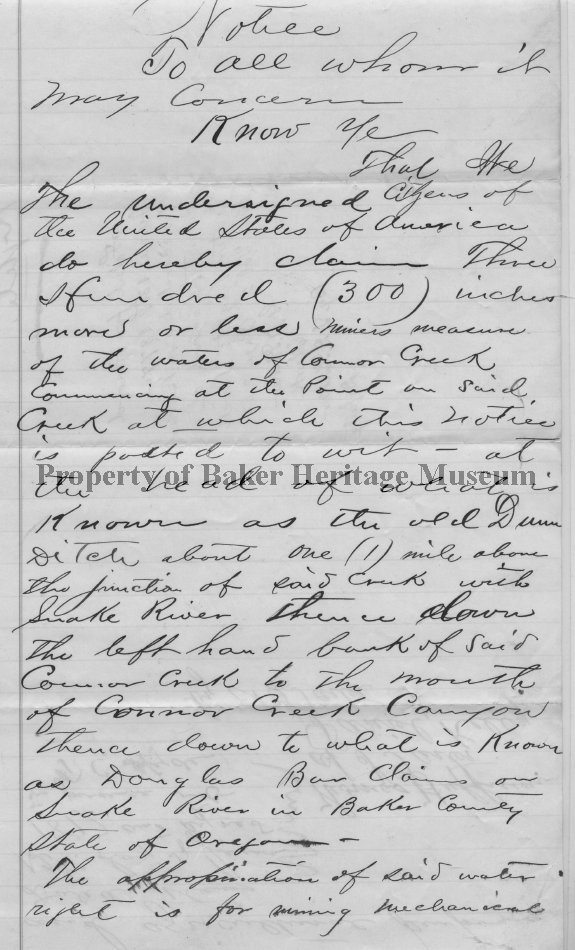 Notice
To all whom it
may Concern
Know Ye
That We
The undersigned Citizens of
the United States of America
do hereby claim Three
Hundred (300) inches
more or less miners measure
of the waters of Connor Creek
Commencing at the Point on said
Creek at which this notice
is posted to wit - at
Property of Baker Heritage Museum
the head of what is
Known as the old Dunn
Ditch about one (1) mile above
the junction of said Creek with
Snake River thence down
the left hand bank of said
Connor Creek to the mouth
of Connor Creek Canyon
thence down to what is Known
as Douglas Bar Claim on
Snake River in Baker County
State of Oregon -
The appropriation of said water
right is for mining mechanical